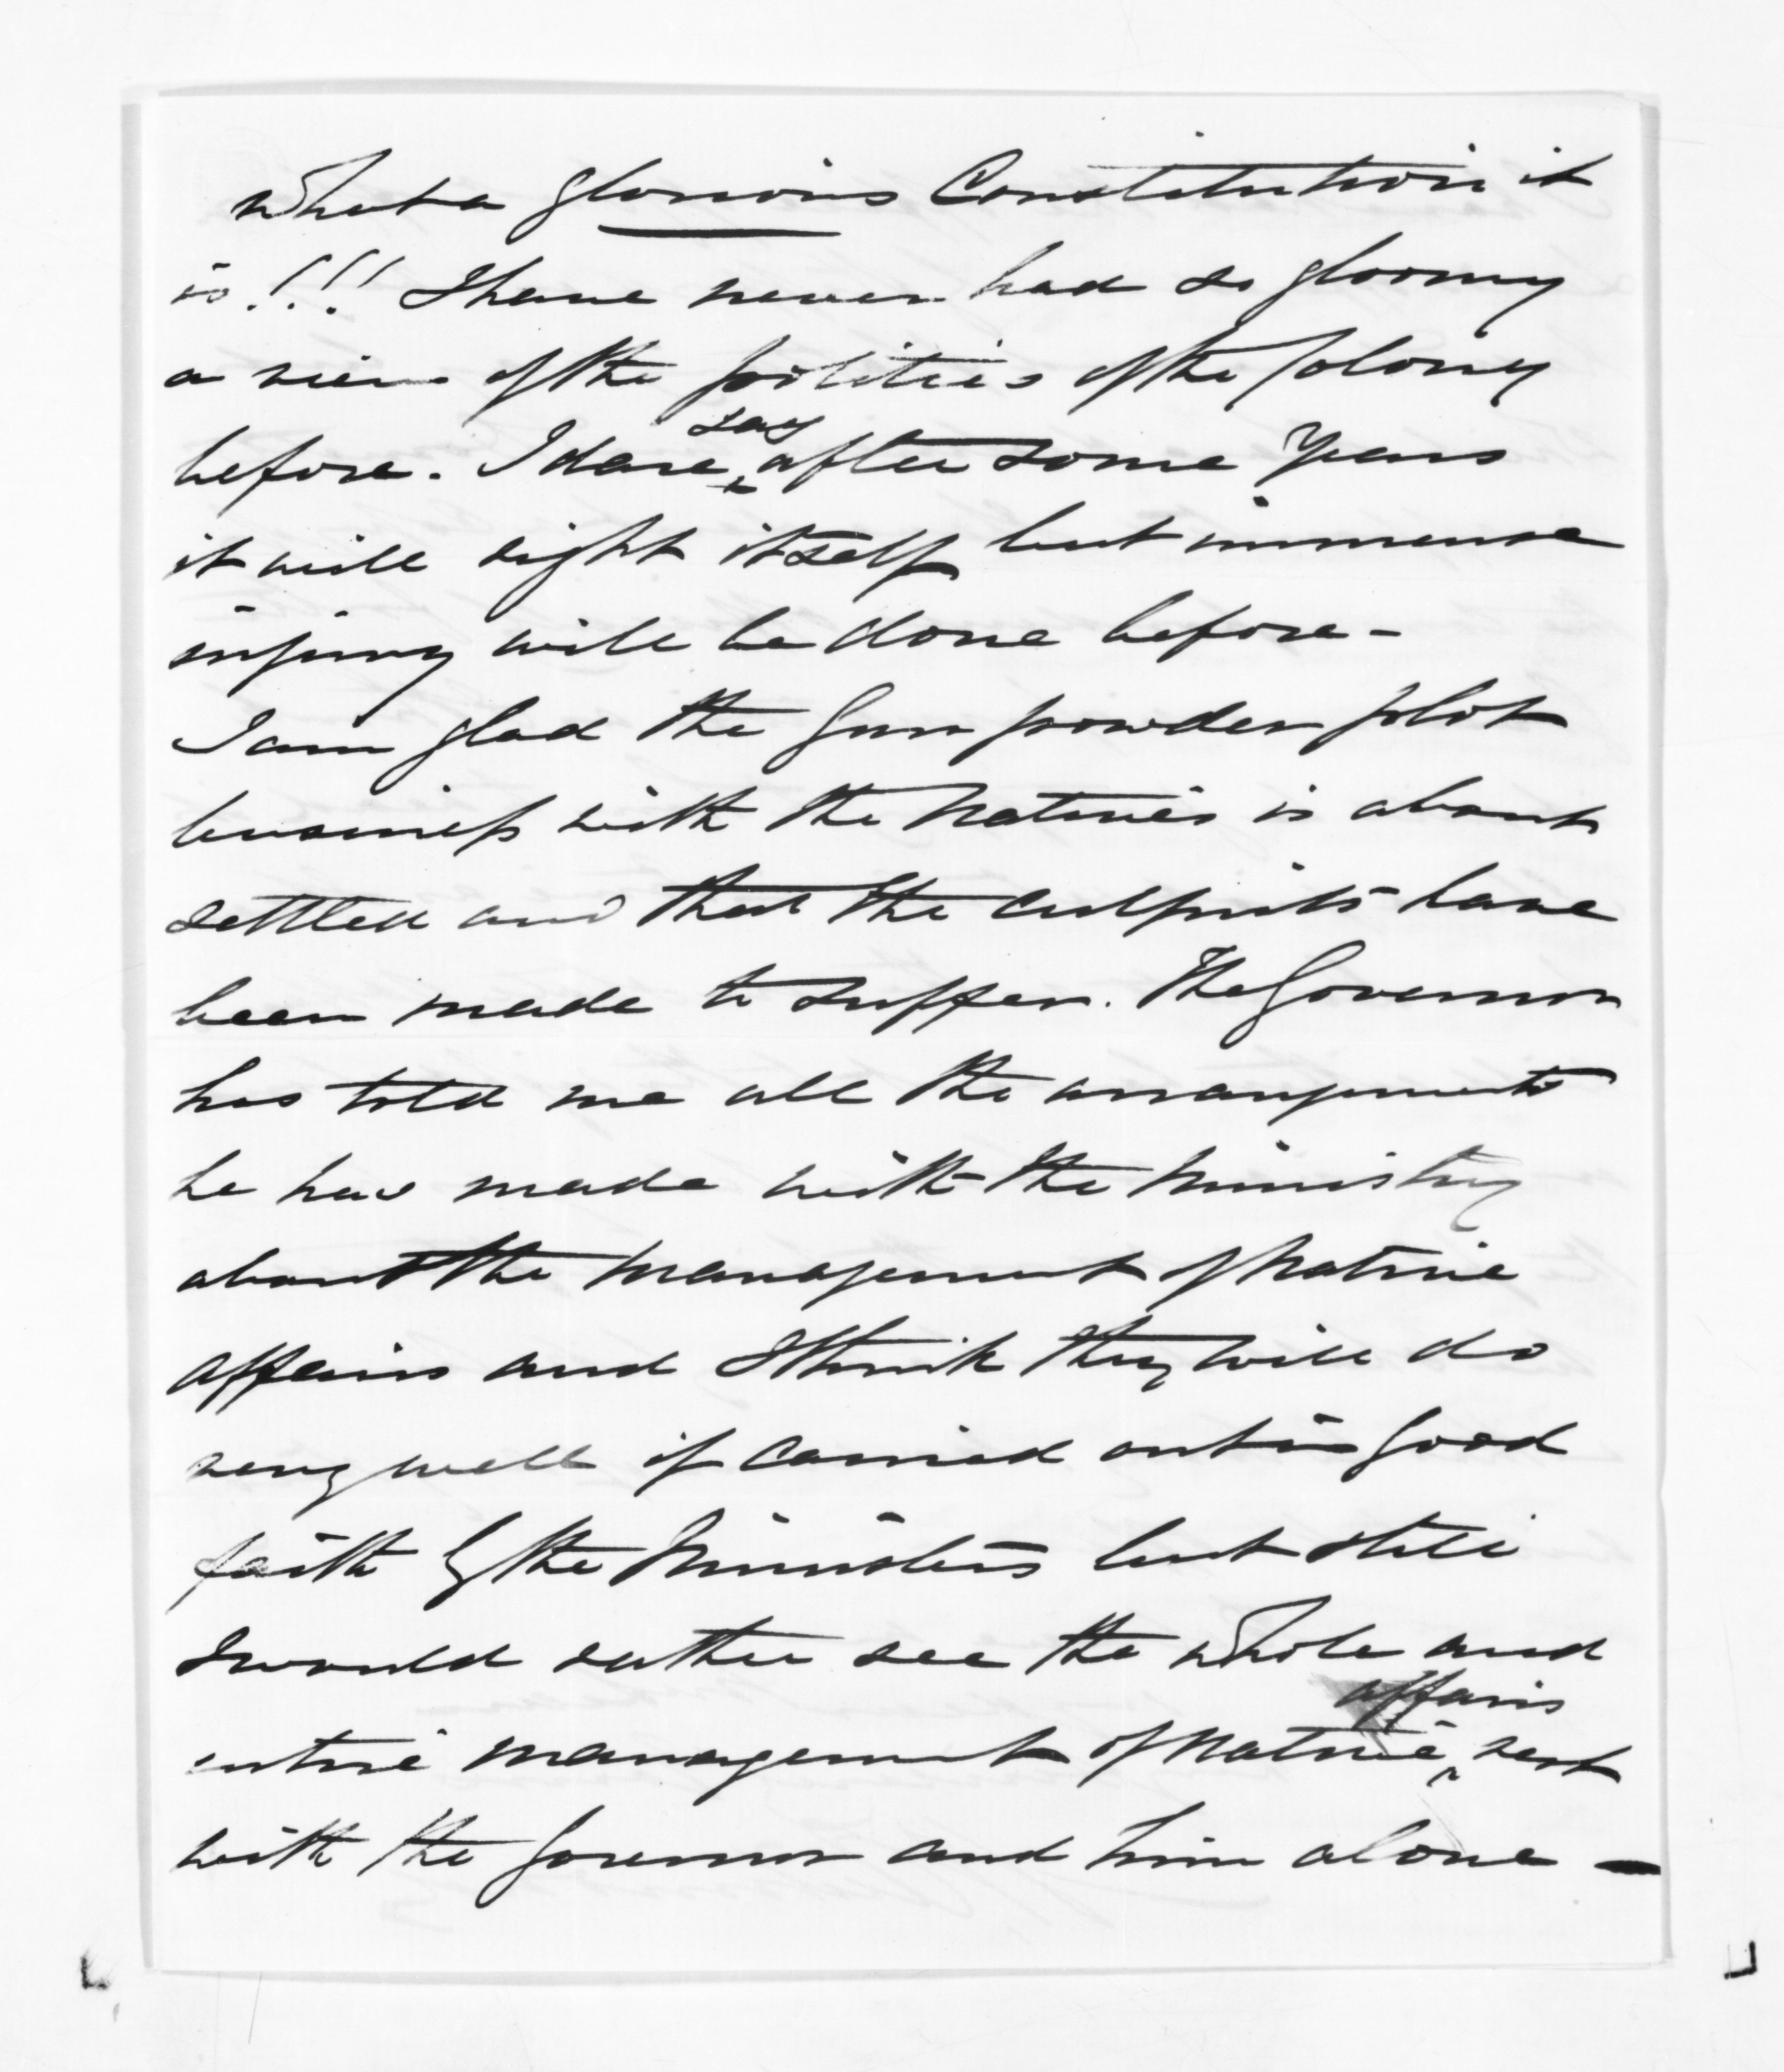 What a glorious Constitution it
is!!! I have never had so gloomy
a view of the politics of the Colony
before. I dare say after some Years
it will right itself but immense
injury will be done before -
I am glad the Gun powder plot
business with the Natives is about
settled and that the culprits have
been made to suffer. The Governor
has told me all the arrangements
he has made with the Ministry
about the management of Native
affairs and I think they will do
very well if carried out in good
faith by the Ministers but still
I would rather see the whole and
entire management of Native affairs rest
with the Governor and him alone -